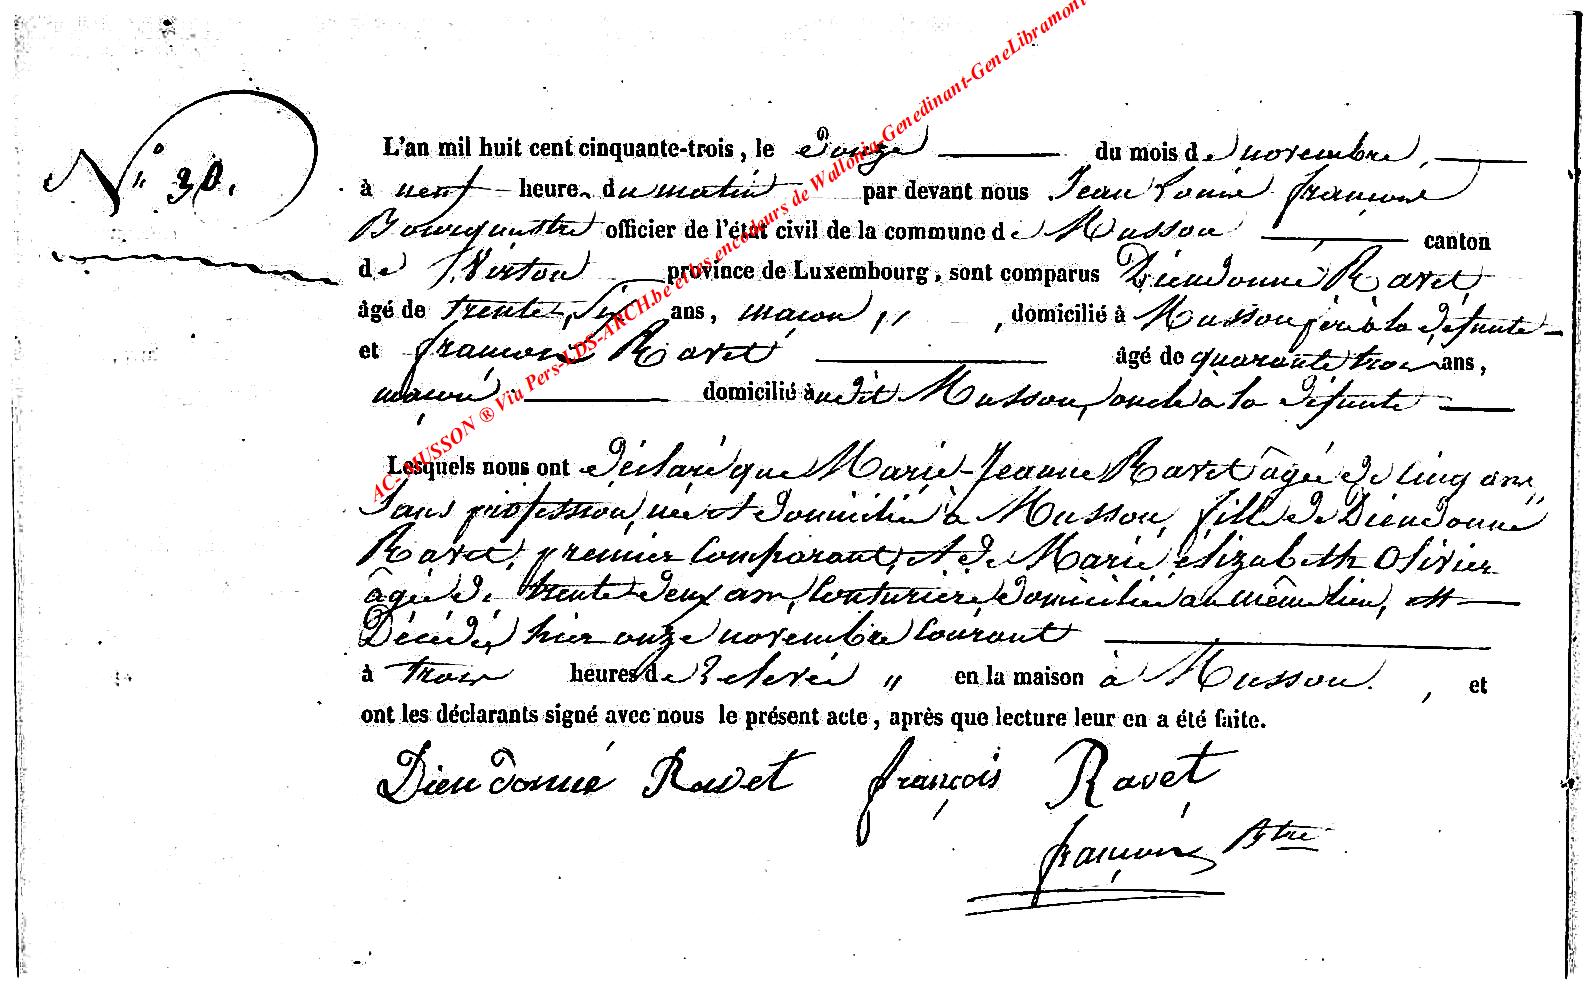 N° 30.
L'an mil huit cent cinquante-trois, le douze du mois de novembre,
à neuf heure du matin par devant nous Jean Louis françois
Bourgmestre officier de l'état civil de la commune de Musson canton
de Virton province de Luxembourg, sont comparus Dieudonné Ravet
âgé de trente six ans, maçon, domicilié à Musson, père à la défunte
et françois Ravet âgé de quarante trois ans,
maçon domicilié audit Musson, oncle à la défunte
Lesquels nous ont déclaré que Marie-Jeanne Ravet âgée de cinq ans,
sans profession, née et domiciliée à Musson, fille de Dieudonné
Ravet, premier Comparant, et de Marie élizabeth Olivier
âgée de trente deux ans, Couturière, domiciliée au même lieu, est
Décédée hier onze novembre Courant
à trois heures de relevée " en la maison à Musson. , et
ont les déclarants signé avec nous le présent acte, après que lecture leur en a été faite.
Dieudonné Ravet françois Ravet
françois Bgtre
AC-MUSSON ® Via Pers-LDS-ARCH.be et les encodeurs de Wallonia-Genedinant-GeneLibramont